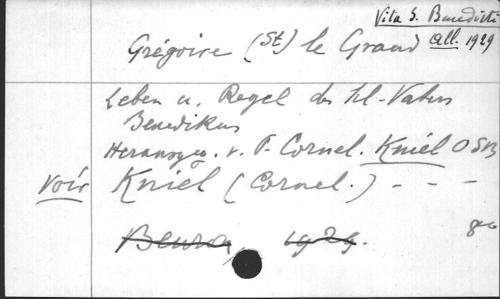 Vita S. Benedicti
Grégoire (St) le Grand all. 1929
Leben u. Regel des hl. Vaters
Benedikus
Herausgeg. v. P. Cornel. Kniel OSB
voir Kniel (Cornel.) - - -
Beuron 1929. 8°